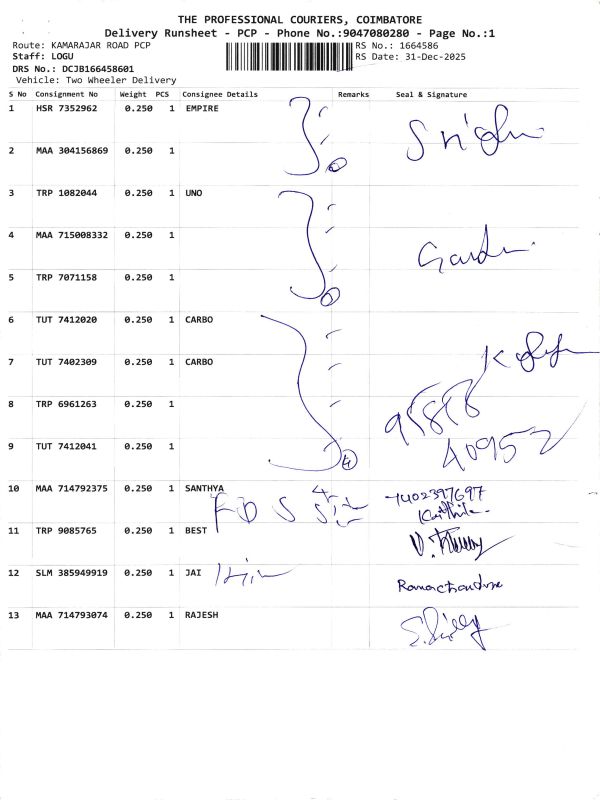 THE PROFESSIONAL COURIERS, COIMBATORE
Delivery Runsheet - PCP - Phone No.:9047080280 - Page No.:1
Route: KAMARAJAR ROAD PCP
RS No.: 1664586
Staff: LOGU
RS Date: 31-Dec-2025
DRS No.: DCJB166458601
Vehicle: Two Wheeler Delivery
S No Consignment No Weight PCS Consignee Details Remarks Seal & Signature
1 HSR 7352962 0.250 1 EMPIRE
2 MAA 304156869 0.250 1
3 TRP 1082044 0.250 1 UNO
4 MAA 715008332 0.250 1
5 TRP 7071158 0.250 1
6 TUT 7412020 0.250 1 CARBO
7 TUT 7402309 0.250 1 CARBO
8 TRP 6961263 0.250 1
95878
9 TUT 7412041 0.250 1
40952
4
10 MAA 714792375 0.250 1 SANTHYA 7402397697
11 TRP 9085765 0.250 1 BEST
12 SLM 385949919 0.250 1 JAI
13 MAA 714793074 0.250 1 RAJESH